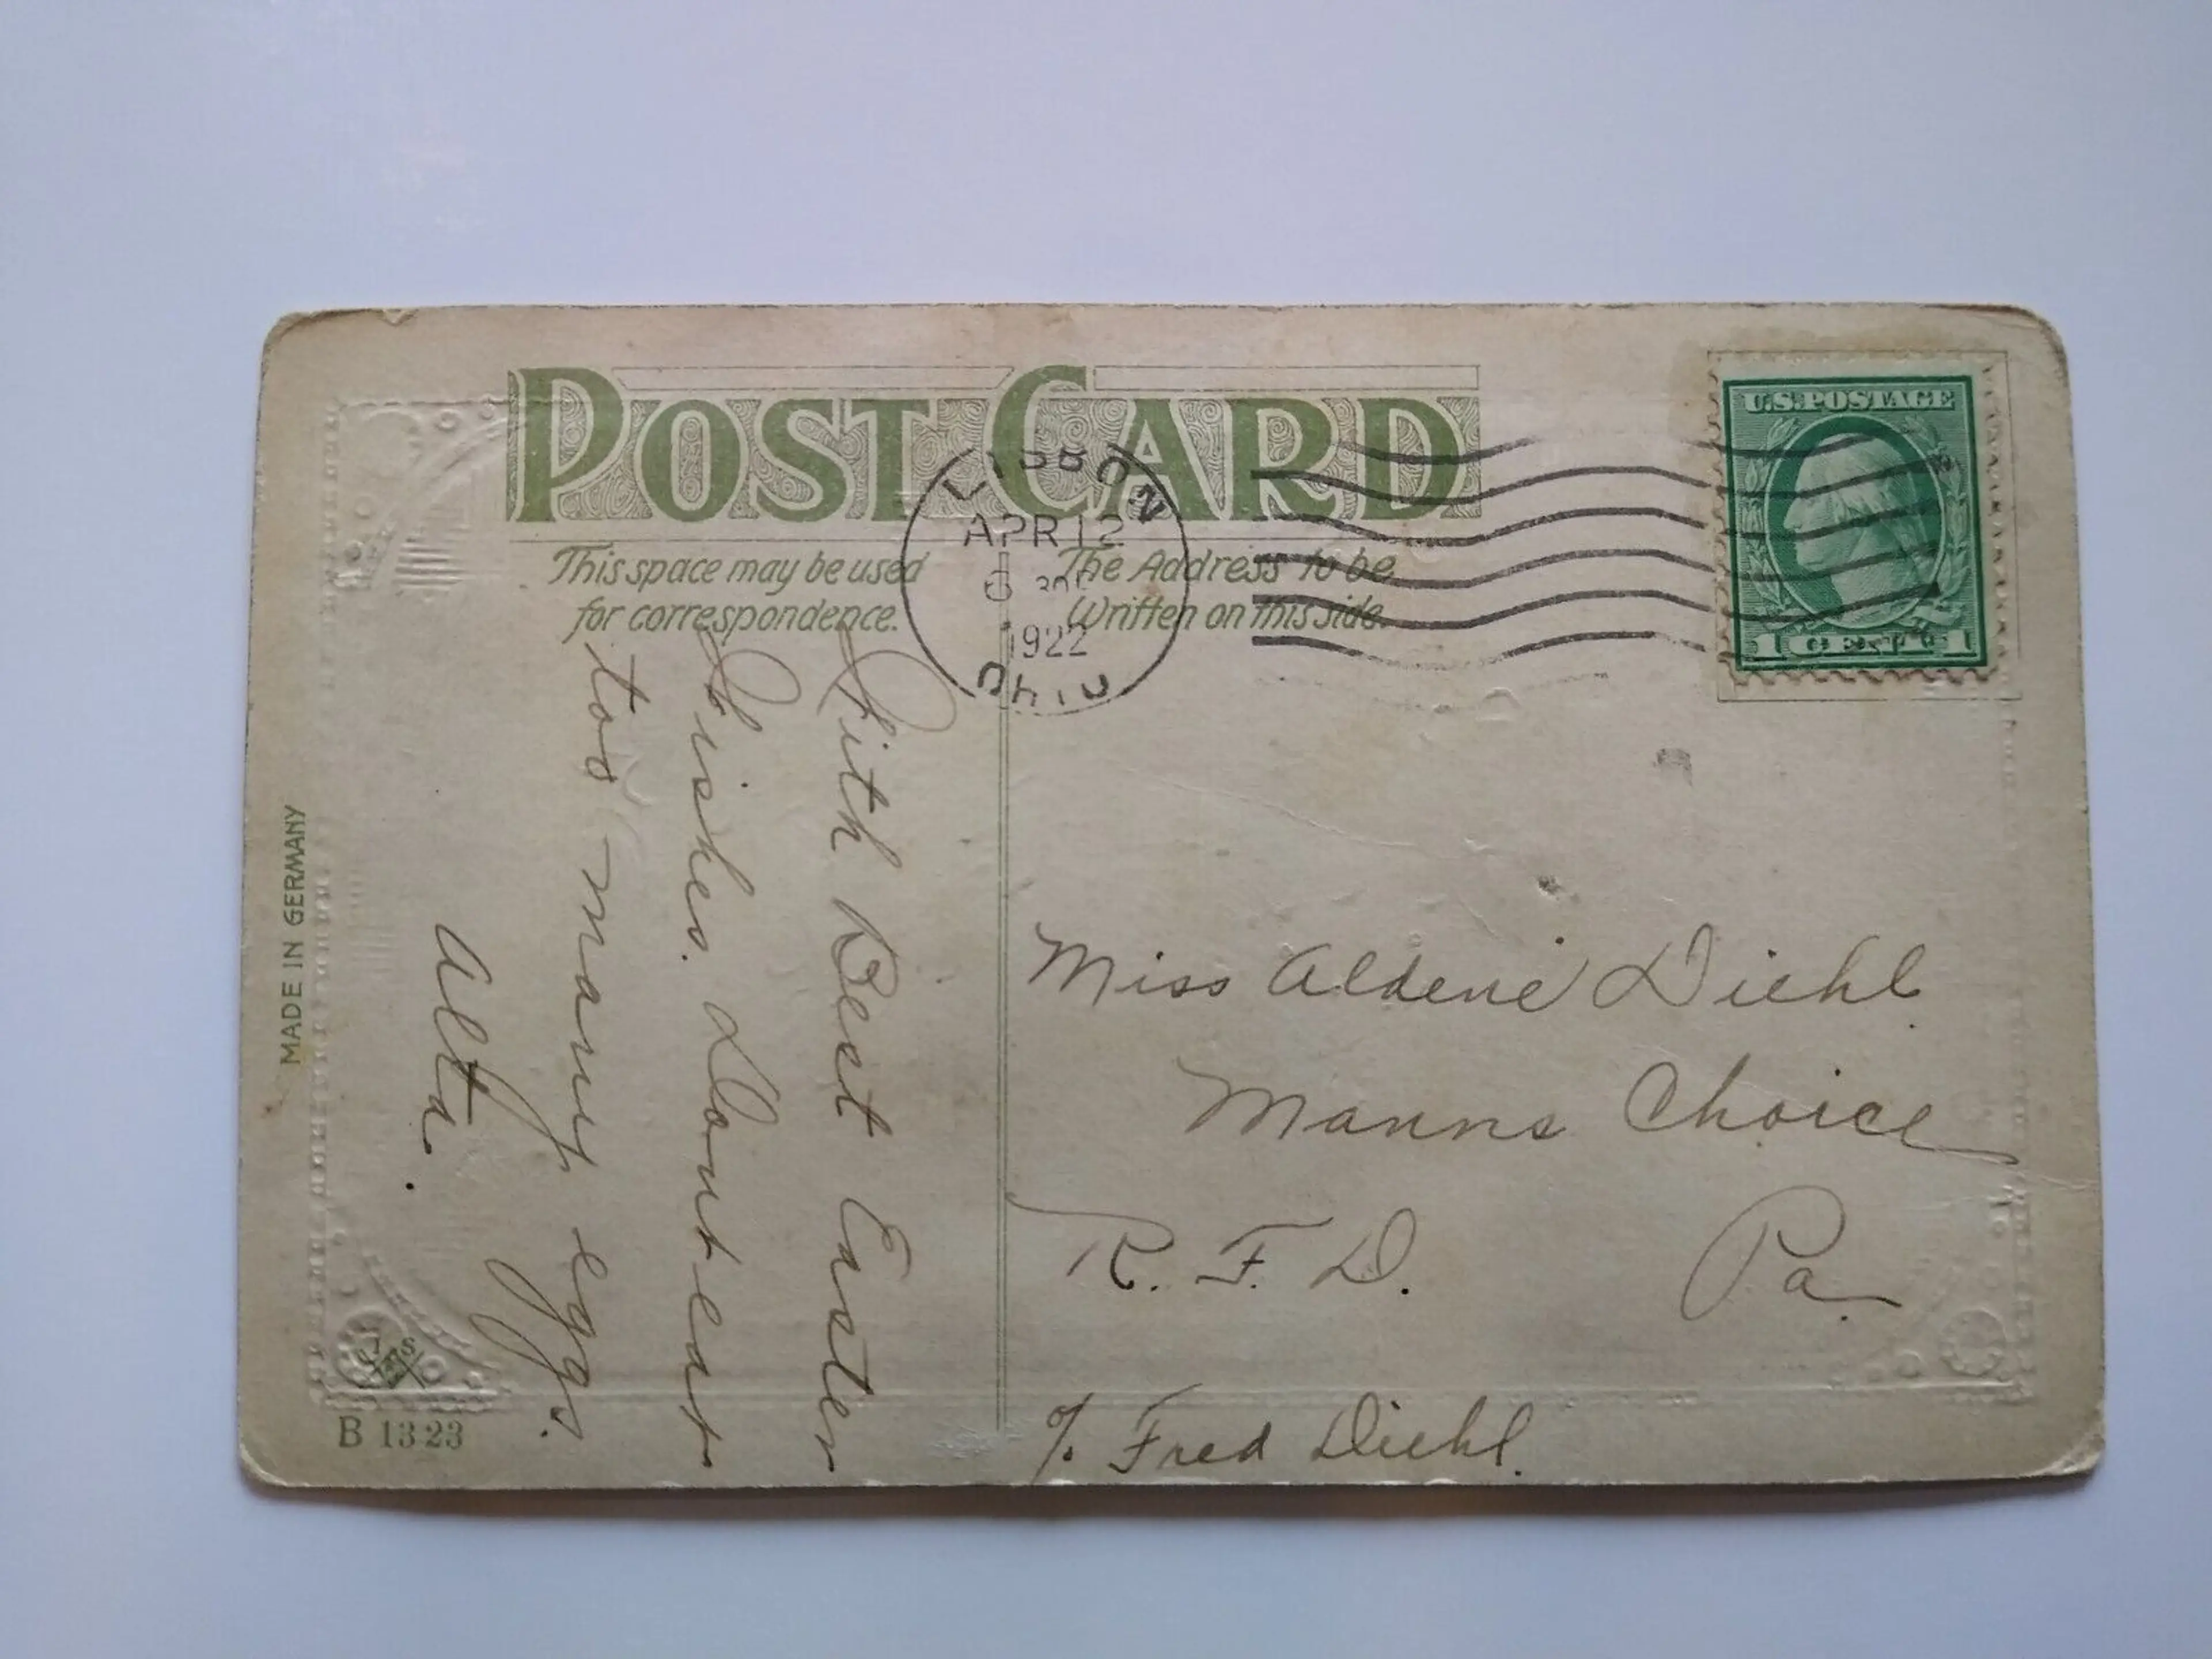 POST CARD
This space may be used
for correspondence.
The Address to be
Written on this side.
LISBON
APR 12
6 30P
1922
OHIO
U.S. POSTAGE
1 CENT 1
With Best Easter
Wishes. Dont eat
too many eggs.
Alta.
Miss Aldene Diehl
Manns Choice
R. F. D. Pa.
%. Fred Diehl.
MADE IN GERMANY
B 1323